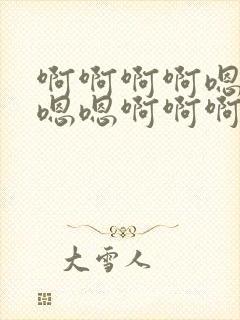 啊啊啊啊嗯
嗯嗯啊啊啊
大雪人